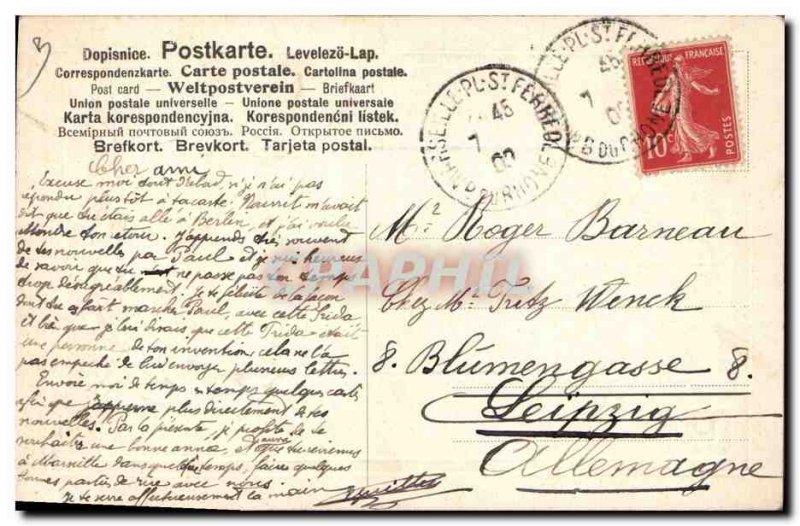 Dopisnice. Postkarte. Levelezö-Lap.
Correspondenzkarte. Carte postale. Cartolina postale.
Post card — Weltpostverein — Briefkaart
Union postale universelle – Unione postale universale
Karta korespondencyjna. Korespondenční lístek.
Всемірный почтовый союзъ. Россія. Открытое письмо.
Brefkort. Brevkort. Tarjeta postal.
Cher ami
Excuse moi dont si je n'ai pas
répondu plustôt à ta carte. Nourrit m'avait
dit que tu étais allé à Berlin, et j'ai voulu
attendre ton retour. J'apprends très souvent
de tes nouvelles par Paul et je suis heureux
de savoir que tu ne passe pas ton temps
trop désagréablement. Je te félicite de la façon
dont tu as fait marcher Paul, avec cette Frida
et bien que je lui disais que cette Frida était
une personne de ton invention cela ne l'a
pas empêché de lui envoyer plusieurs lettres.
Envoie moi de temps en temps quelques cartes
afin que plus directement de tes
nouvelles. Par la présente, je profite de te
souhaiter une bonne année, et que tu reviennes
à Marseille dans quelque temps, faire quelques
bonnes parties de rire avec nous.
Je te serre affectueusement la main
RÉPUBLIQUE FRANÇAISE
10c
POSTES
MARSEILLE-PL-ST FERREOL
45
7
BCH DU RHONE
CPAPHIL
Mr Roger Barneau
Chez Mr Fritz Wenck
8. Blumengasse 8.
Leipzig
Allemagne